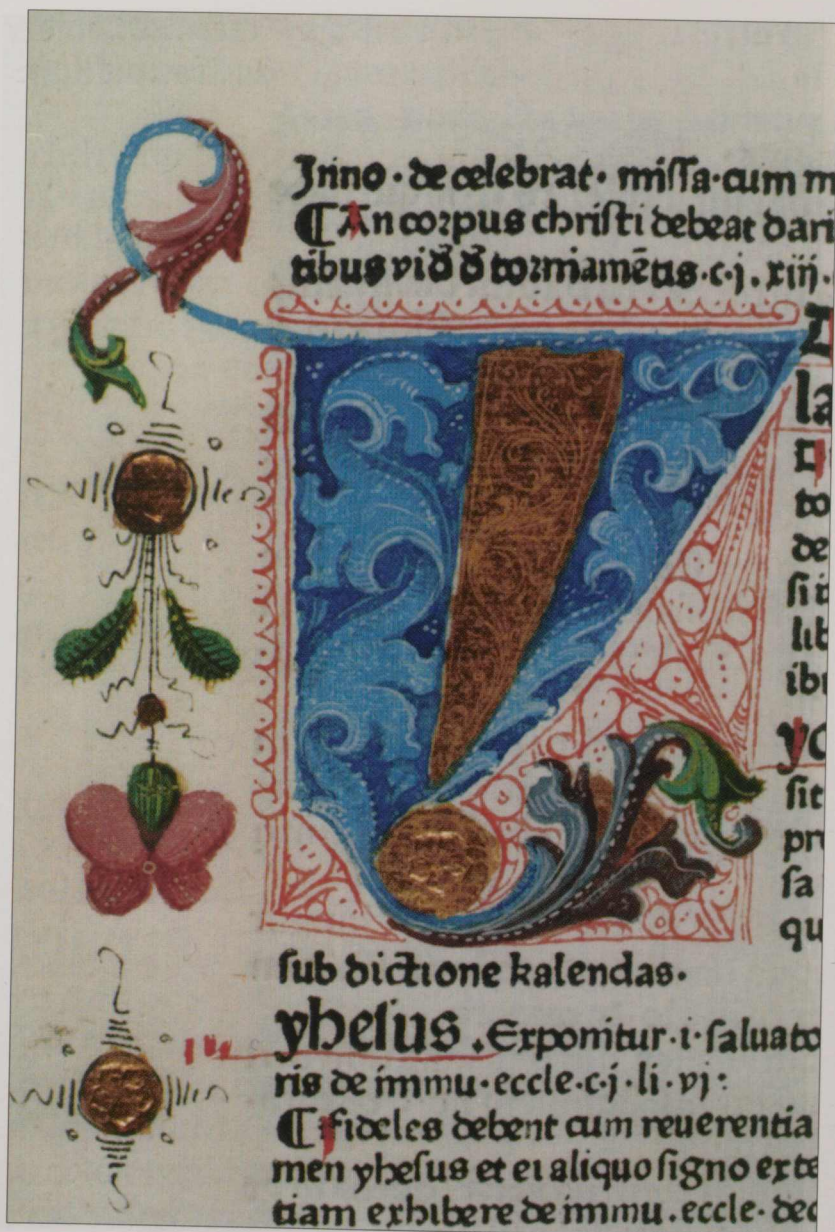 Jnino · de celebrat · missa · cum m
¶ An corpus christi debeat dari
tibus vid̄ d̄ tormamētis · c · j · xiij ·
la
to
de
si
lib
ibi
yo
sit
pr
sa
qu
sub dictione kalendas ·
yhesus . Exponitur · i · saluato
ris de immu · eccle · c · j · li · vj :
¶ fideles debent cum reuerentia
men yhesus et ei aliquo signo exte
tiam exhibere de immu . eccle · dec